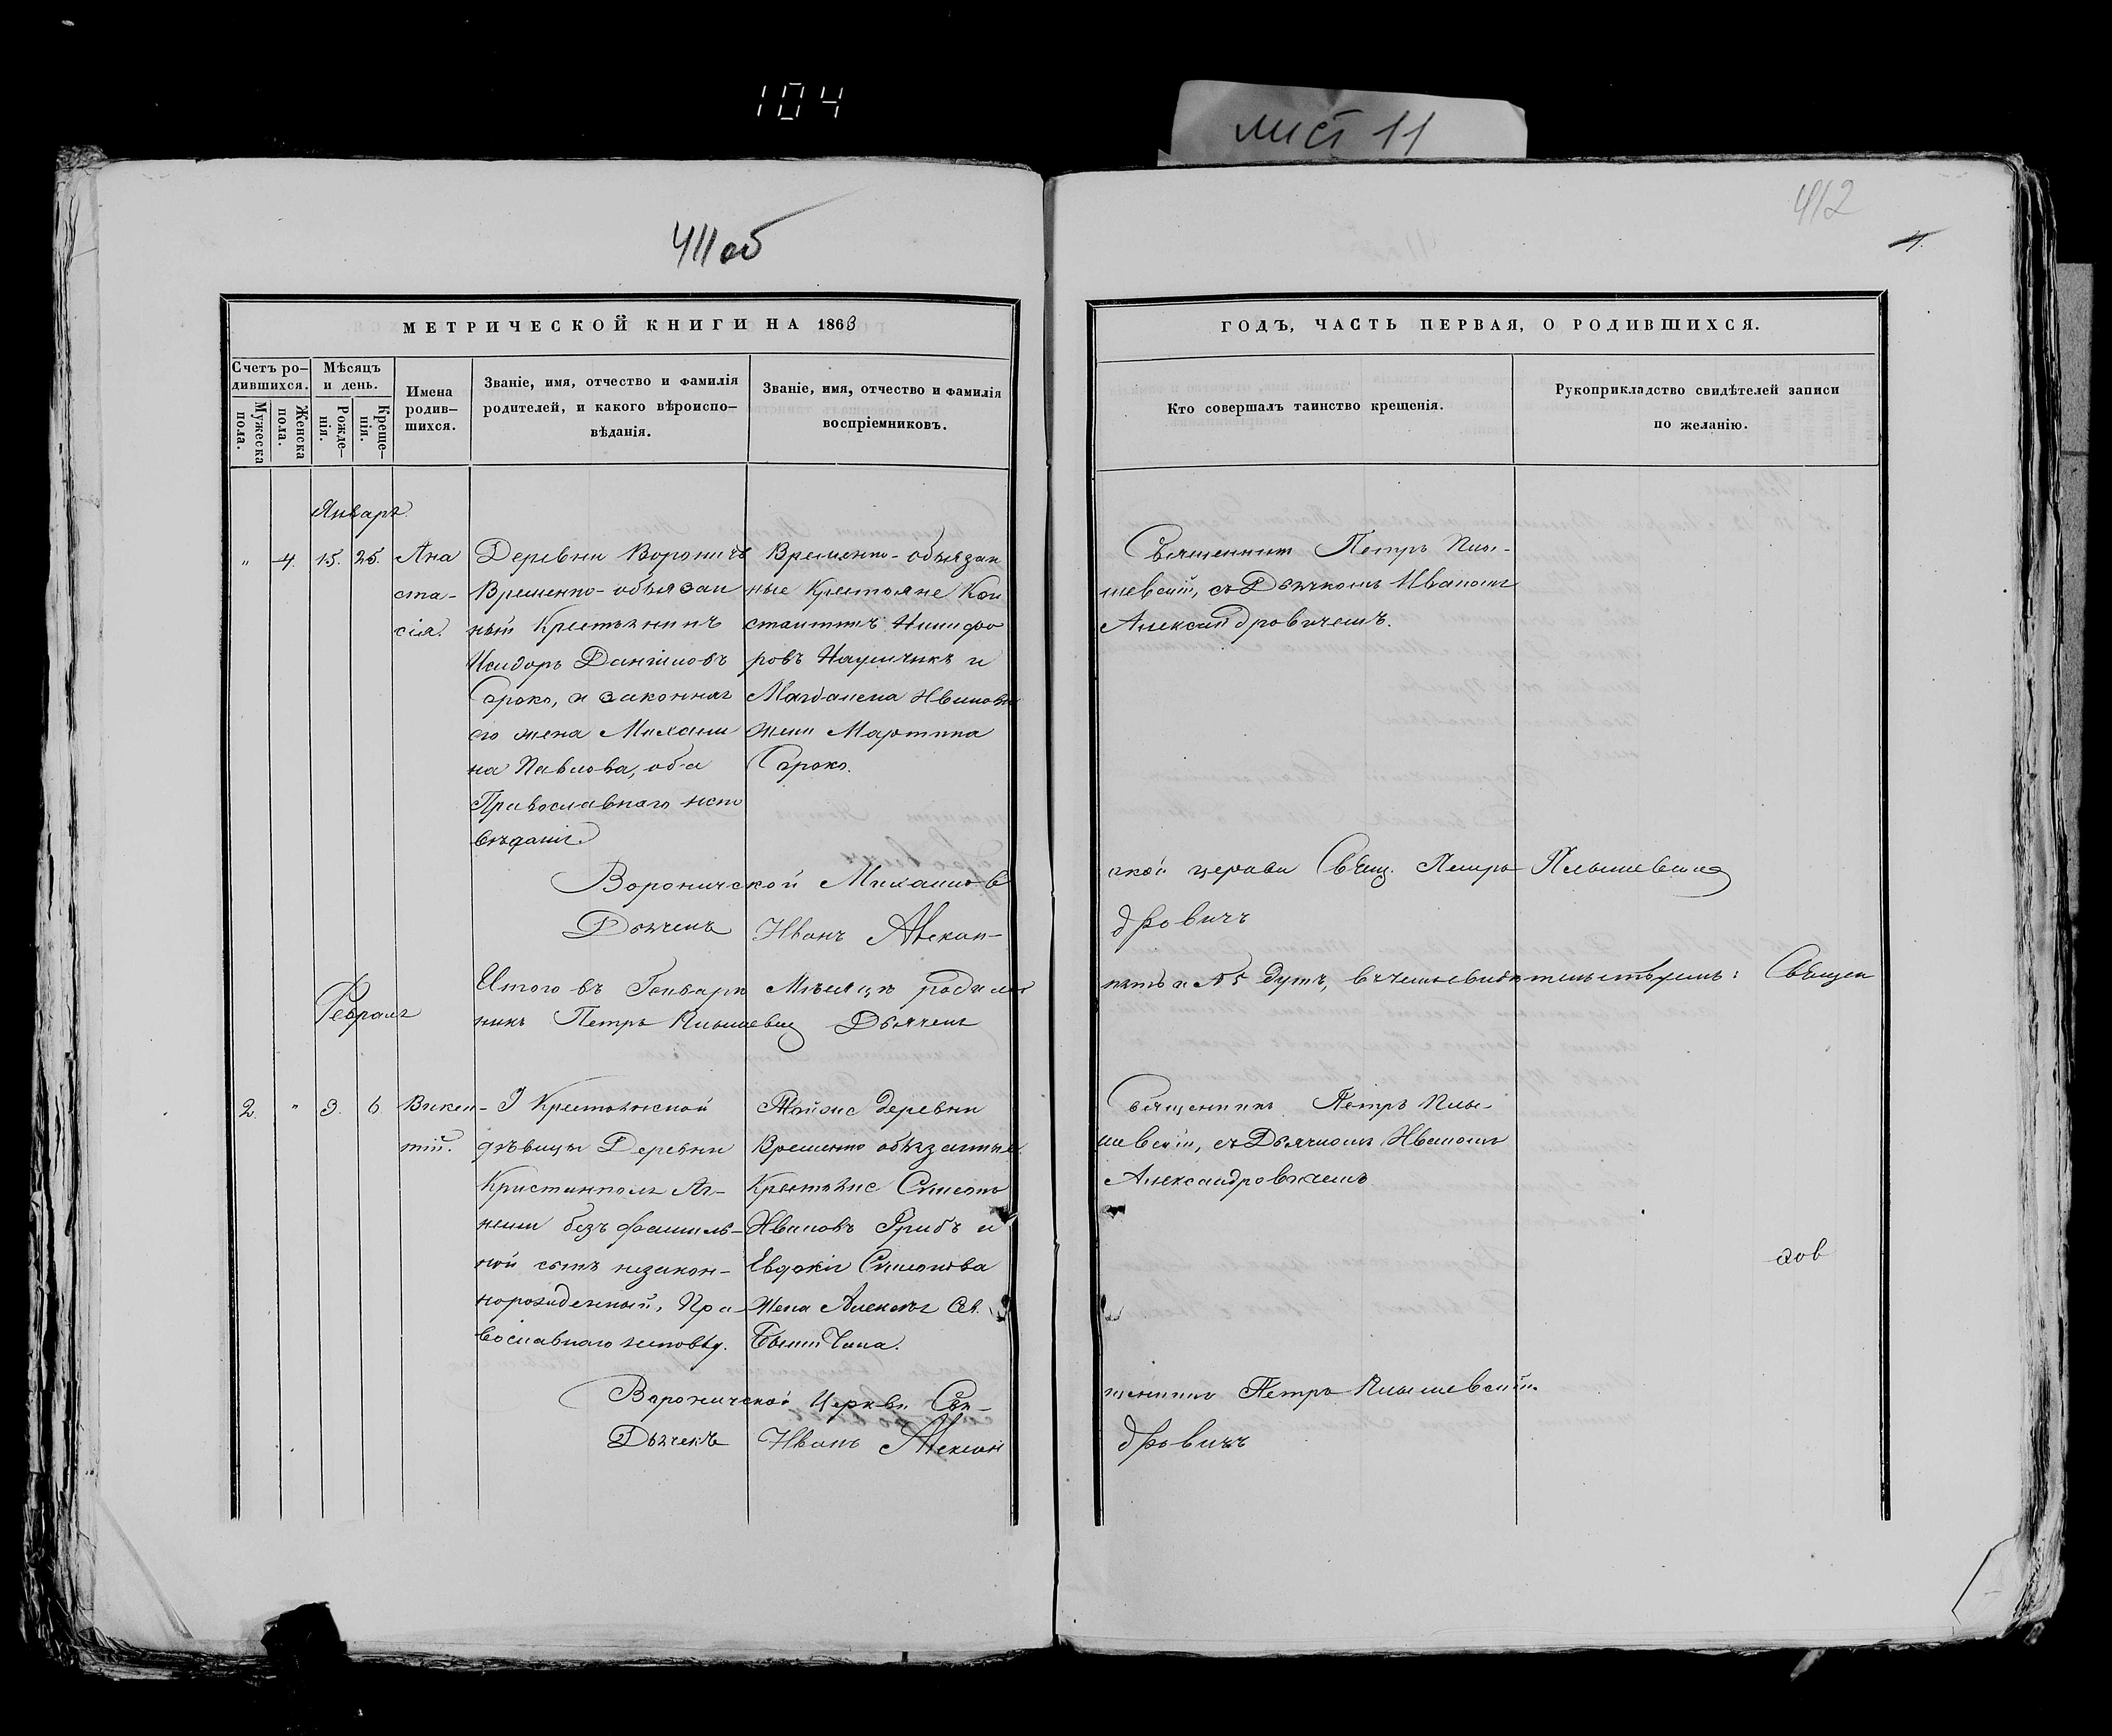 104
лист 11
411об
412
4.
МЕТРИЧЕСКОЙ КНИГИ НА 1863
ГОДЪ, ЧАСТЬ ПЕРВАЯ, О РОДИВШИХСЯ.
Счетъ ро-
дившихся.
Мужеска
пола.
Женска
пола.
Мѣсяцъ
и день.
Рожде-
нія.
Креще-
нія.
Имена
родив-
шихся.
Званіе, имя, отчество и фамилія
родителей, и какого вѣроиспо-
вѣданія.
Званіе, имя, отчество и фамилія
воспріемниковъ.
Кто совершалъ таинство крещенія.
Рукоприкладство свидѣтелей записи
по желанію.
Январь.
" 4. 15. 25.
Ана
ста-
сія.
Деревни Вороничъ
Временно-обязан
ный Крестьянинъ
Исидоръ Даніиловъ
Сороко, и законная
его жена Михали
на Павлова, оба
Православнаго испо
вѣданія
Временно-обязан
ные Крестьяне Кон
стантинъ Никифо
ровъ Наумчикъ и
Магдалена Иванова
жена Мартина
Сороко.
Священникъ Петръ Плы-
шевскій, съ Дьячкомъ Иваномъ
Александровичемъ.
Вороничской Михайлов
ской церкви Свящ. Петръ Плышевскій
Дьячекъ Иванъ Алексан-
дровичъ
Итого въ Генварѣ Мѣсяцѣ родилось
пять а № 5 душъ, въ чемъ свидѣтельствуемъ: Священ
никъ Петръ Плышевскій Дьячекъ
Февраль
2. " 3. 6.
Викен-
тій.
Крестьянской
дѣвицы Деревни
Кристинполя Аг-
неши безъ фамиль-
ной сынъ незакон-
норожденный, Пра-
вославнаго исповѣд.
Тойже деревни
Временно обязанные
Крестьяне Симеонъ
Ивановъ Грибъ и
Евдокія Симонова
Жена Алексѣя
Священникъ Петръ Плы-
шевскій, съ Дьячкомъ Иваномъ
Александровичемъ
Вороничской Церкви Свя-
щенникъ Петръ Плышевскій.
Дьячекъ Иванъ Алексан
дровичъ